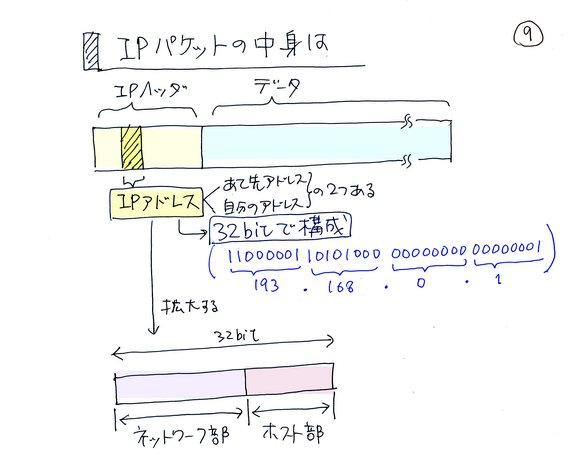 9
IPパケットの中身は
IPヘッダ データ
あて先アドレス
IPアドレス の2つある
自分のアドレス
32bitで構成
(11000001 10101000 00000000 00000001)
193 . 168 . 0 . 1
拡大する
32bit
ネットワーク部 ホスト部